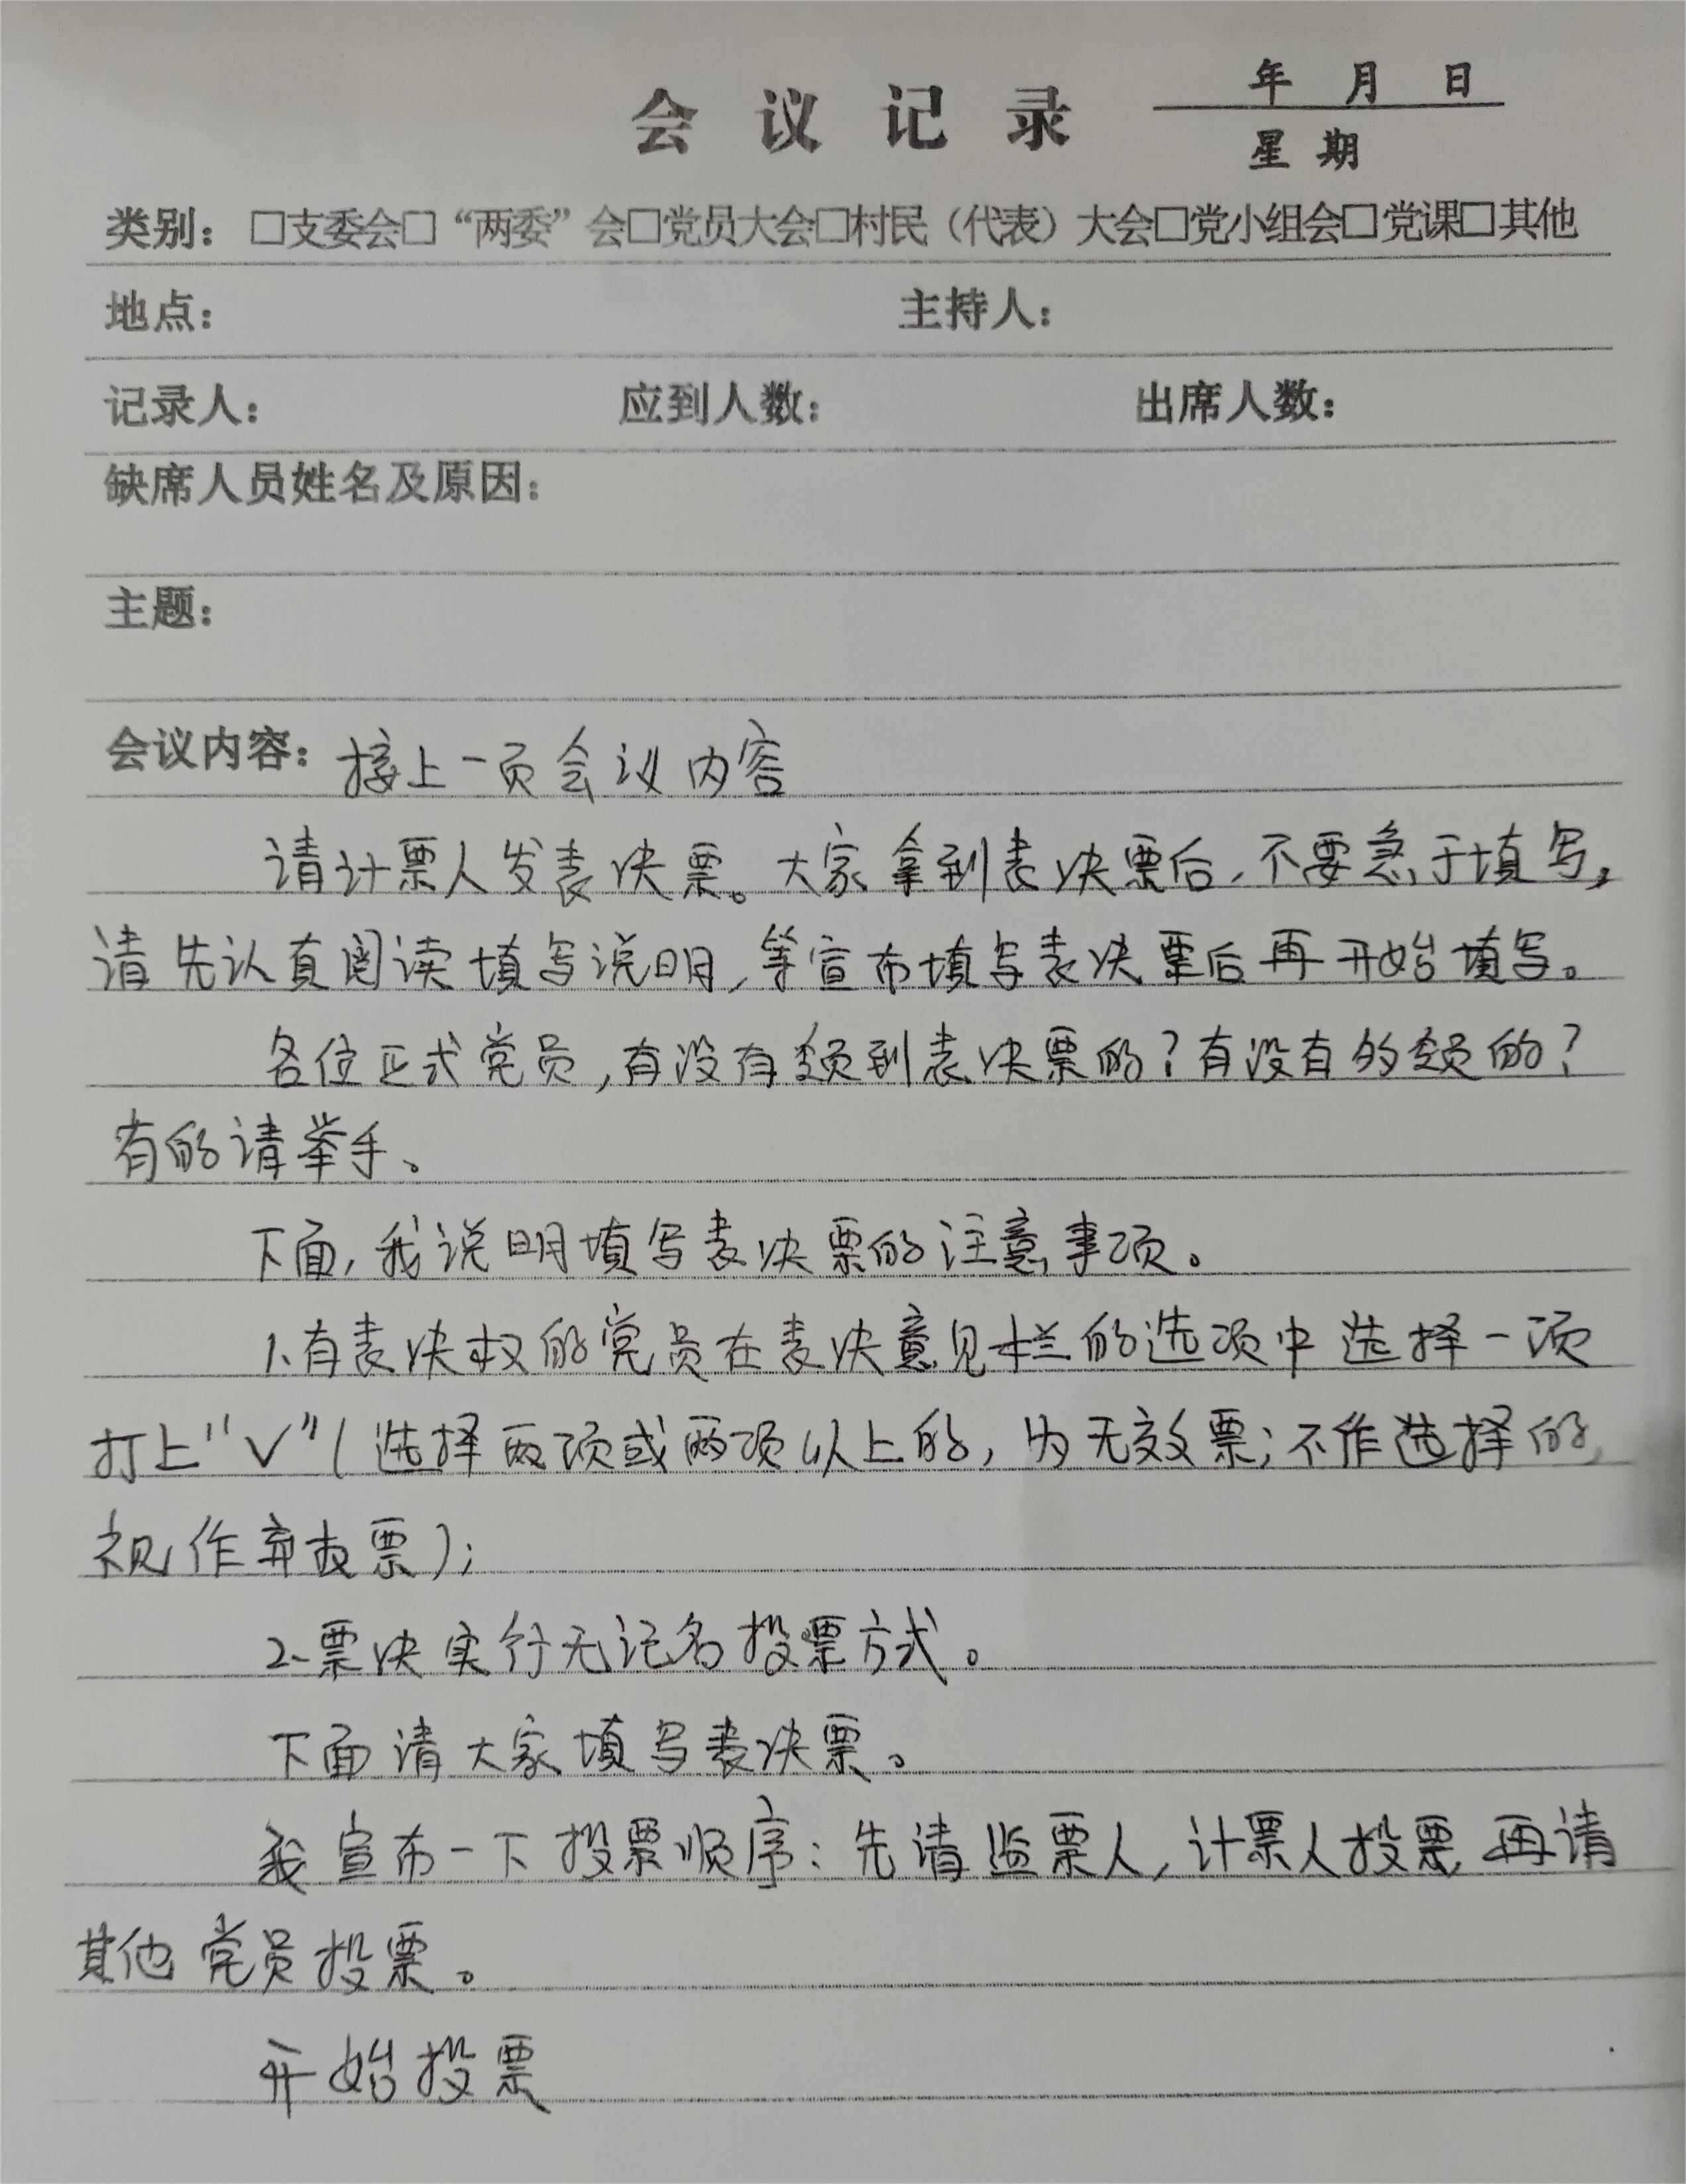 会议记录
年 月 日
星期
类别：□支委会□“两委”会□党员大会□村民（代表）大会□党小组会□党课□其他
地点： 主持人：
记录人： 应到人数： 出席人数：
缺席人员姓名及原因：
主题：
会议内容：接上一页会议内容
请计票人发表决票。大家拿到表决票后，不要急于填写，
请先认真阅读填写说明，等宣布填写表决票后再开始填写。
各位正式党员，有没有领到表决票的？有没有多领的？
有的请举手。
下面，我说明填写表决票的注意事项。
1、有表决权的党员在表决意见栏的选项中选择一项
打上“√”（选择两项或两项以上的，为无效票；不作选择的，
视作弃权票）；
2、票决实行无记名投票方式。
下面请大家填写表决票。
我宣布一下投票顺序：先请监票人，计票人投票，再请
其他党员投票。
开始投票